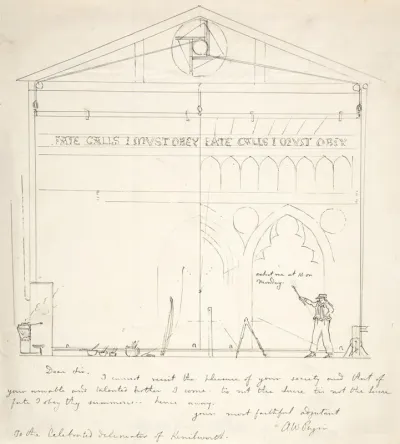 FATE CALLS I MUST OBEY FATE CALLS I MUST OBEY
expect me at 10 on
Monday
Dear Sir. I cannot resist the pleasure of your society and that of
your amiable and talented brother I come. tis not the dance tis not the
fate I obey thy summons - hence away.
your most faithful
AW Pugin
To the Celebrated Delineator of Kenilworth.